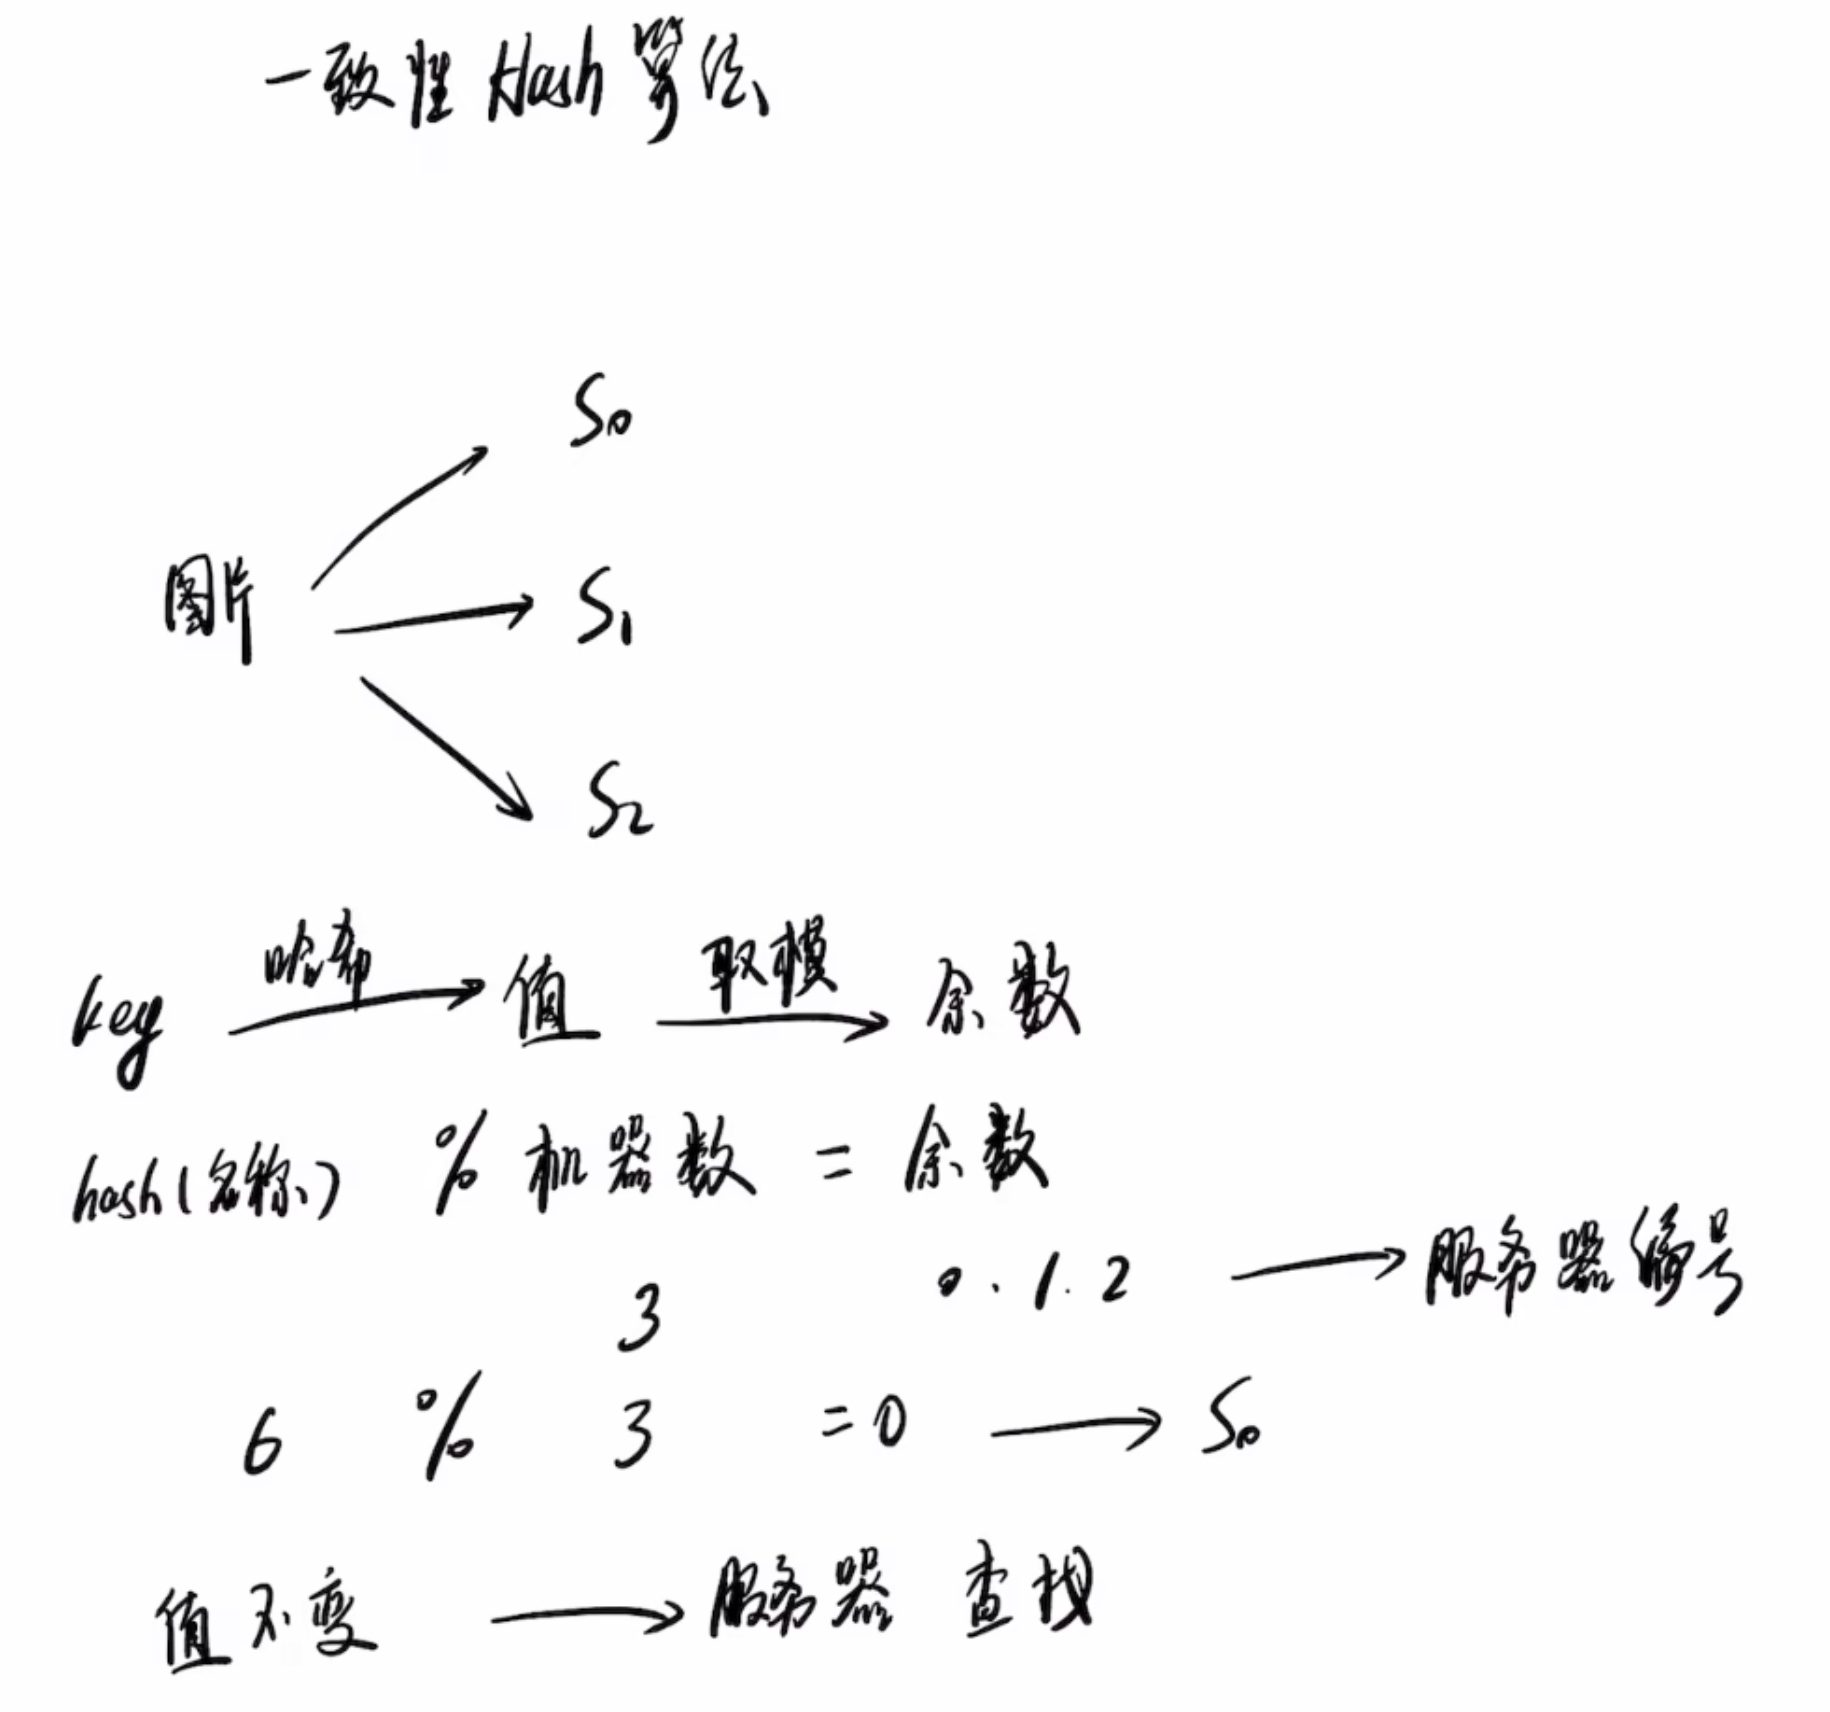 一致性 Hash 算法
S0
图片
S1
S2
key 哈希 值 取模 余数
hash(名称) % 机器数 = 余数
3 0.1.2 服务器编号
6 % 3 =0 S0
值不变 服务器 查找